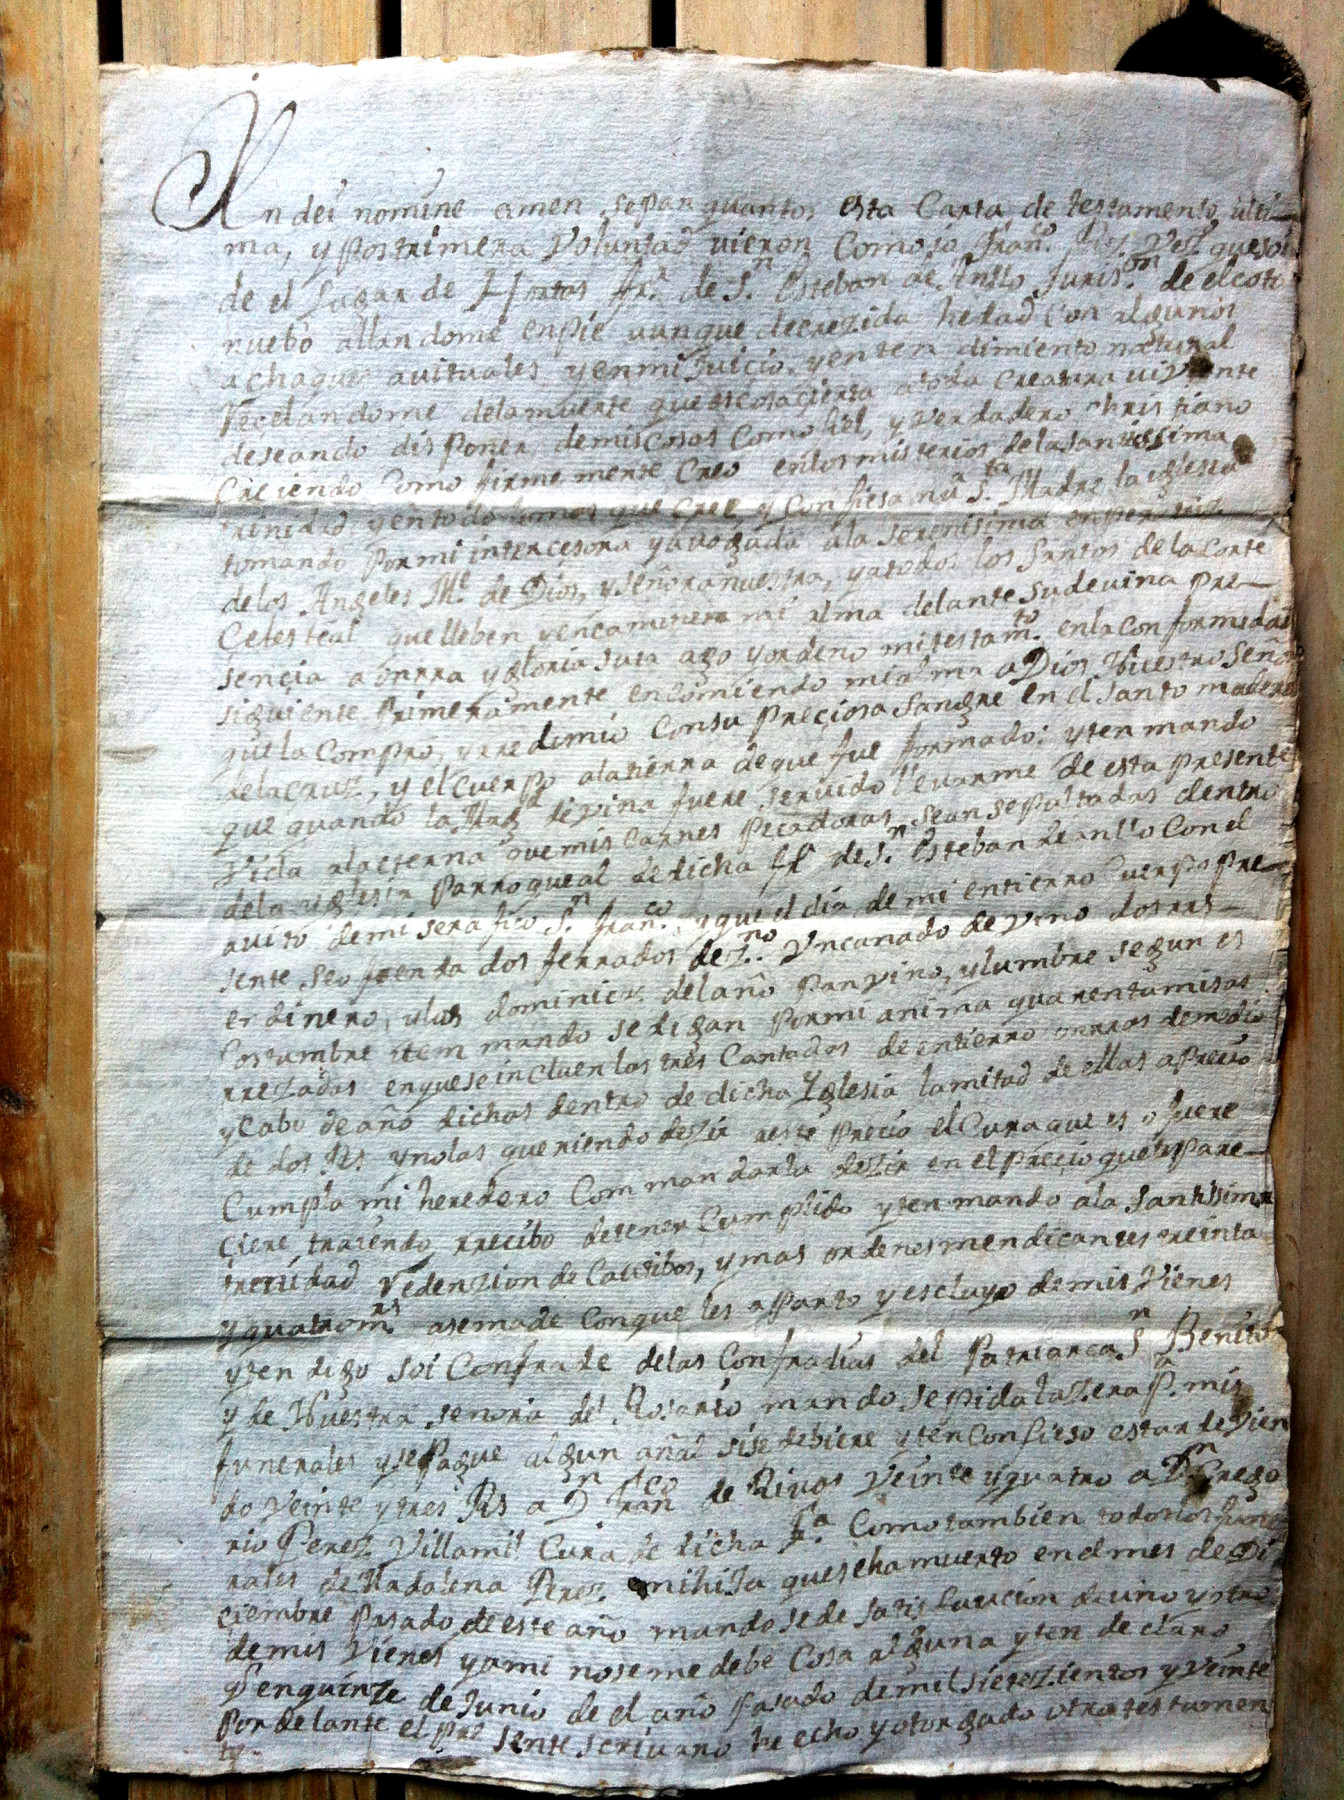 Yn dei nomine amen sepan quantos esta Carta de testamento ulti-
ma, y postrimera Voluntad vieron Como io Fran.co que soi
de el lugar de Hortas fr.a de S.n Esteban de Anllo Juris.on de el coto
nuebo allandome en pie aunque decrezida hedad Con algunos
achaques avituales y en mi Juicio, y entendimiento natural
Recelandome de la muerte que es cosa cierta a toda Creatura viviente
deseando disponer de mis cosas Como fiel, y Verdadero Christiano
Creiendo Como firmemente Creo en los misterios de la santissima
trinidad y en todo lo mas que Cree y Confiesa nra S.ta Madre la iglesia
tomando Por mi intercesora y avogada a la Serenisima enperatriz
de los Angeles M.e de Dios, y señora nuestra, y a todos los Santos de la Corte
Celestial que lleben y encaminen mi Alma delante su devina pre-
sencia a onrra y gloria suia ago y ordeno mi testam.to en la Conformidad
siguiente Primeramente encomiendo mi alma a Dios Nuestro Señor
que la Compro, y rredimio Con su preciosa Sangre en el santo madero
de la cruz, y el Cuerpo a la tierra de que fue formado; yten mando
que quando la Mag.d devina fuere servido llevarme de esta presente
Vida a la eterna que mis Carnes Pecadoras sean sepultadas dentro
de la yglesia Parroqueal de dicha fr.a de S.n Esteban de anllo Con el
avito de mi serafico S.n fran.co, y que el dia de mi entierro Cuerpo pre-
sente se ofrenda dos ferrados de Z.no Un canado de vino dos rrs
en dinero, y las dominicas del año Pan vino, y lumbre segun es
Costumbre item mando se digan Por mi anima quarenta misas
rrezadas en que se incluen las tres Cantadas de entierro onrras de medio
y Cabo de año dichas dentro de dicha Yglesia la mitad de ellas a precio
de dos Rs y no las queriendo dezir a este precio el Cura que es o fuere
Cumpla mi heredero Con mandarla dezir en el precio que le pare-
ciere traiendo rrecibo de tener Cumplido yten mando a la Santissima
trenidad Redenzion de Cautibos, y mas ordenes mendicantes treinta
y quatro m.rs asemade Con que les aparto y escluyo de mis Vienes
yten digo soi Confrade de las Confradias del Patriarca S.n Benito
y de Nuestra señora del Rosario mando se pida la Zera P.a mis
funerales y se Pague algun añal si se debiere yten Confieso estar devien
do Veinte y tres Rs a D.n Fran.co de Rivas Veinte y quatro a D.n Grego
rio Perez Villamil Cura de dicha fr.a Como tambien todos los fune
rales de Madalena Perez mi hija que se ha muerto en el mes de Di
ciembre pasado de este año mando se de satisfacion a uno y otro
de mis Vienes y a mi no se me debe Cosa alguna yten declaro
q en quinze de Junio de el año Pasado de mil sietezientos y Veinte
Por delante el presente scrivano he echo y otorgado otra testamen
to